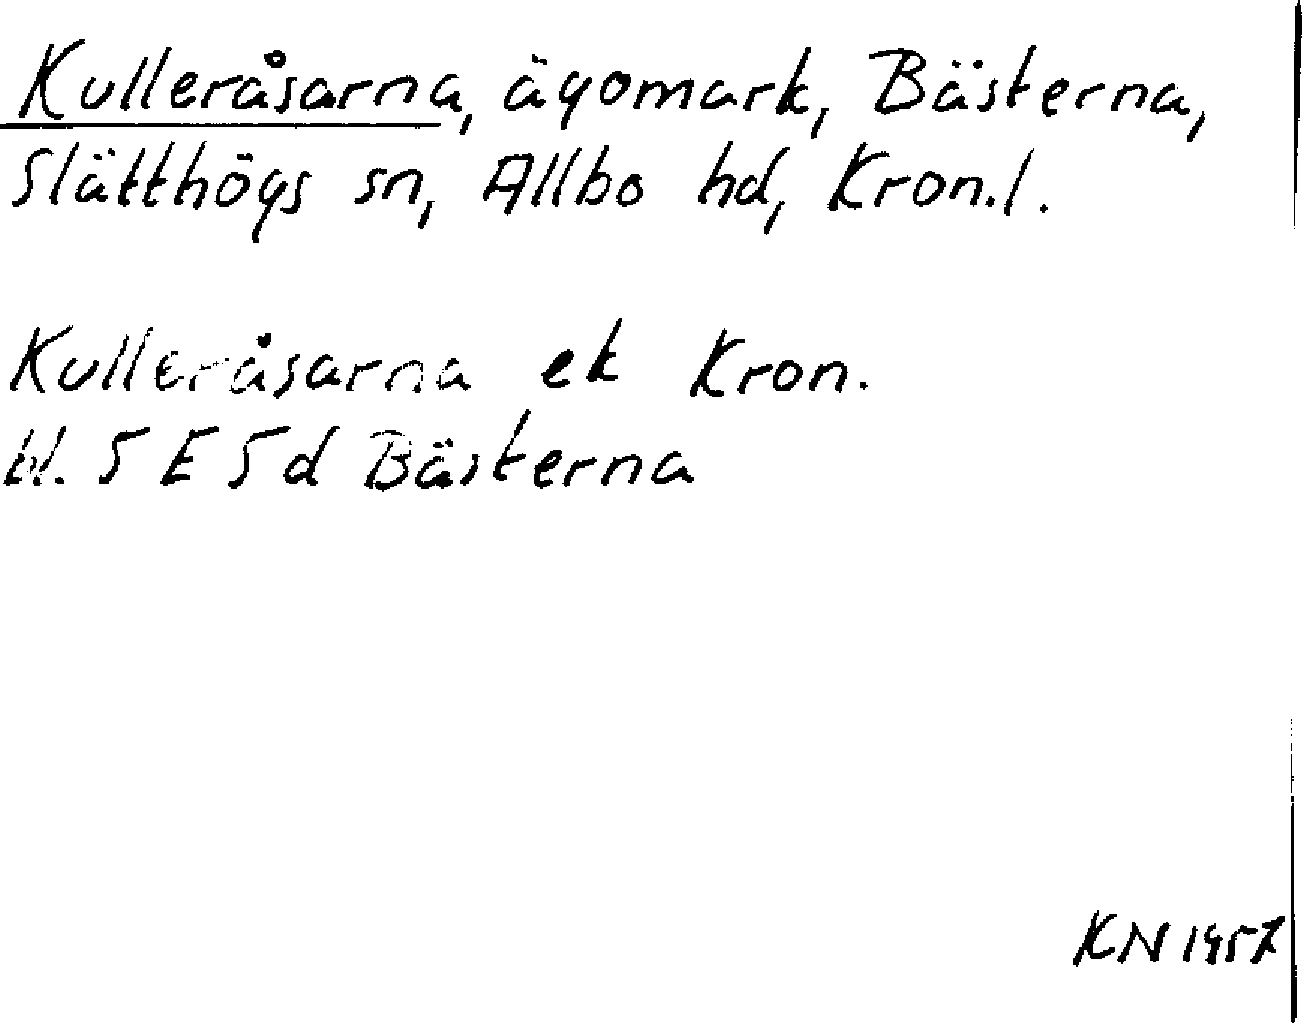 Kulleråsarna, ägomark, Bästerna,
Slätthögs sn, Allbo hd, Kron.l.
Kulleråsarna ek Kron.
bl. 5 E 5 d Bästerna
KN 1957